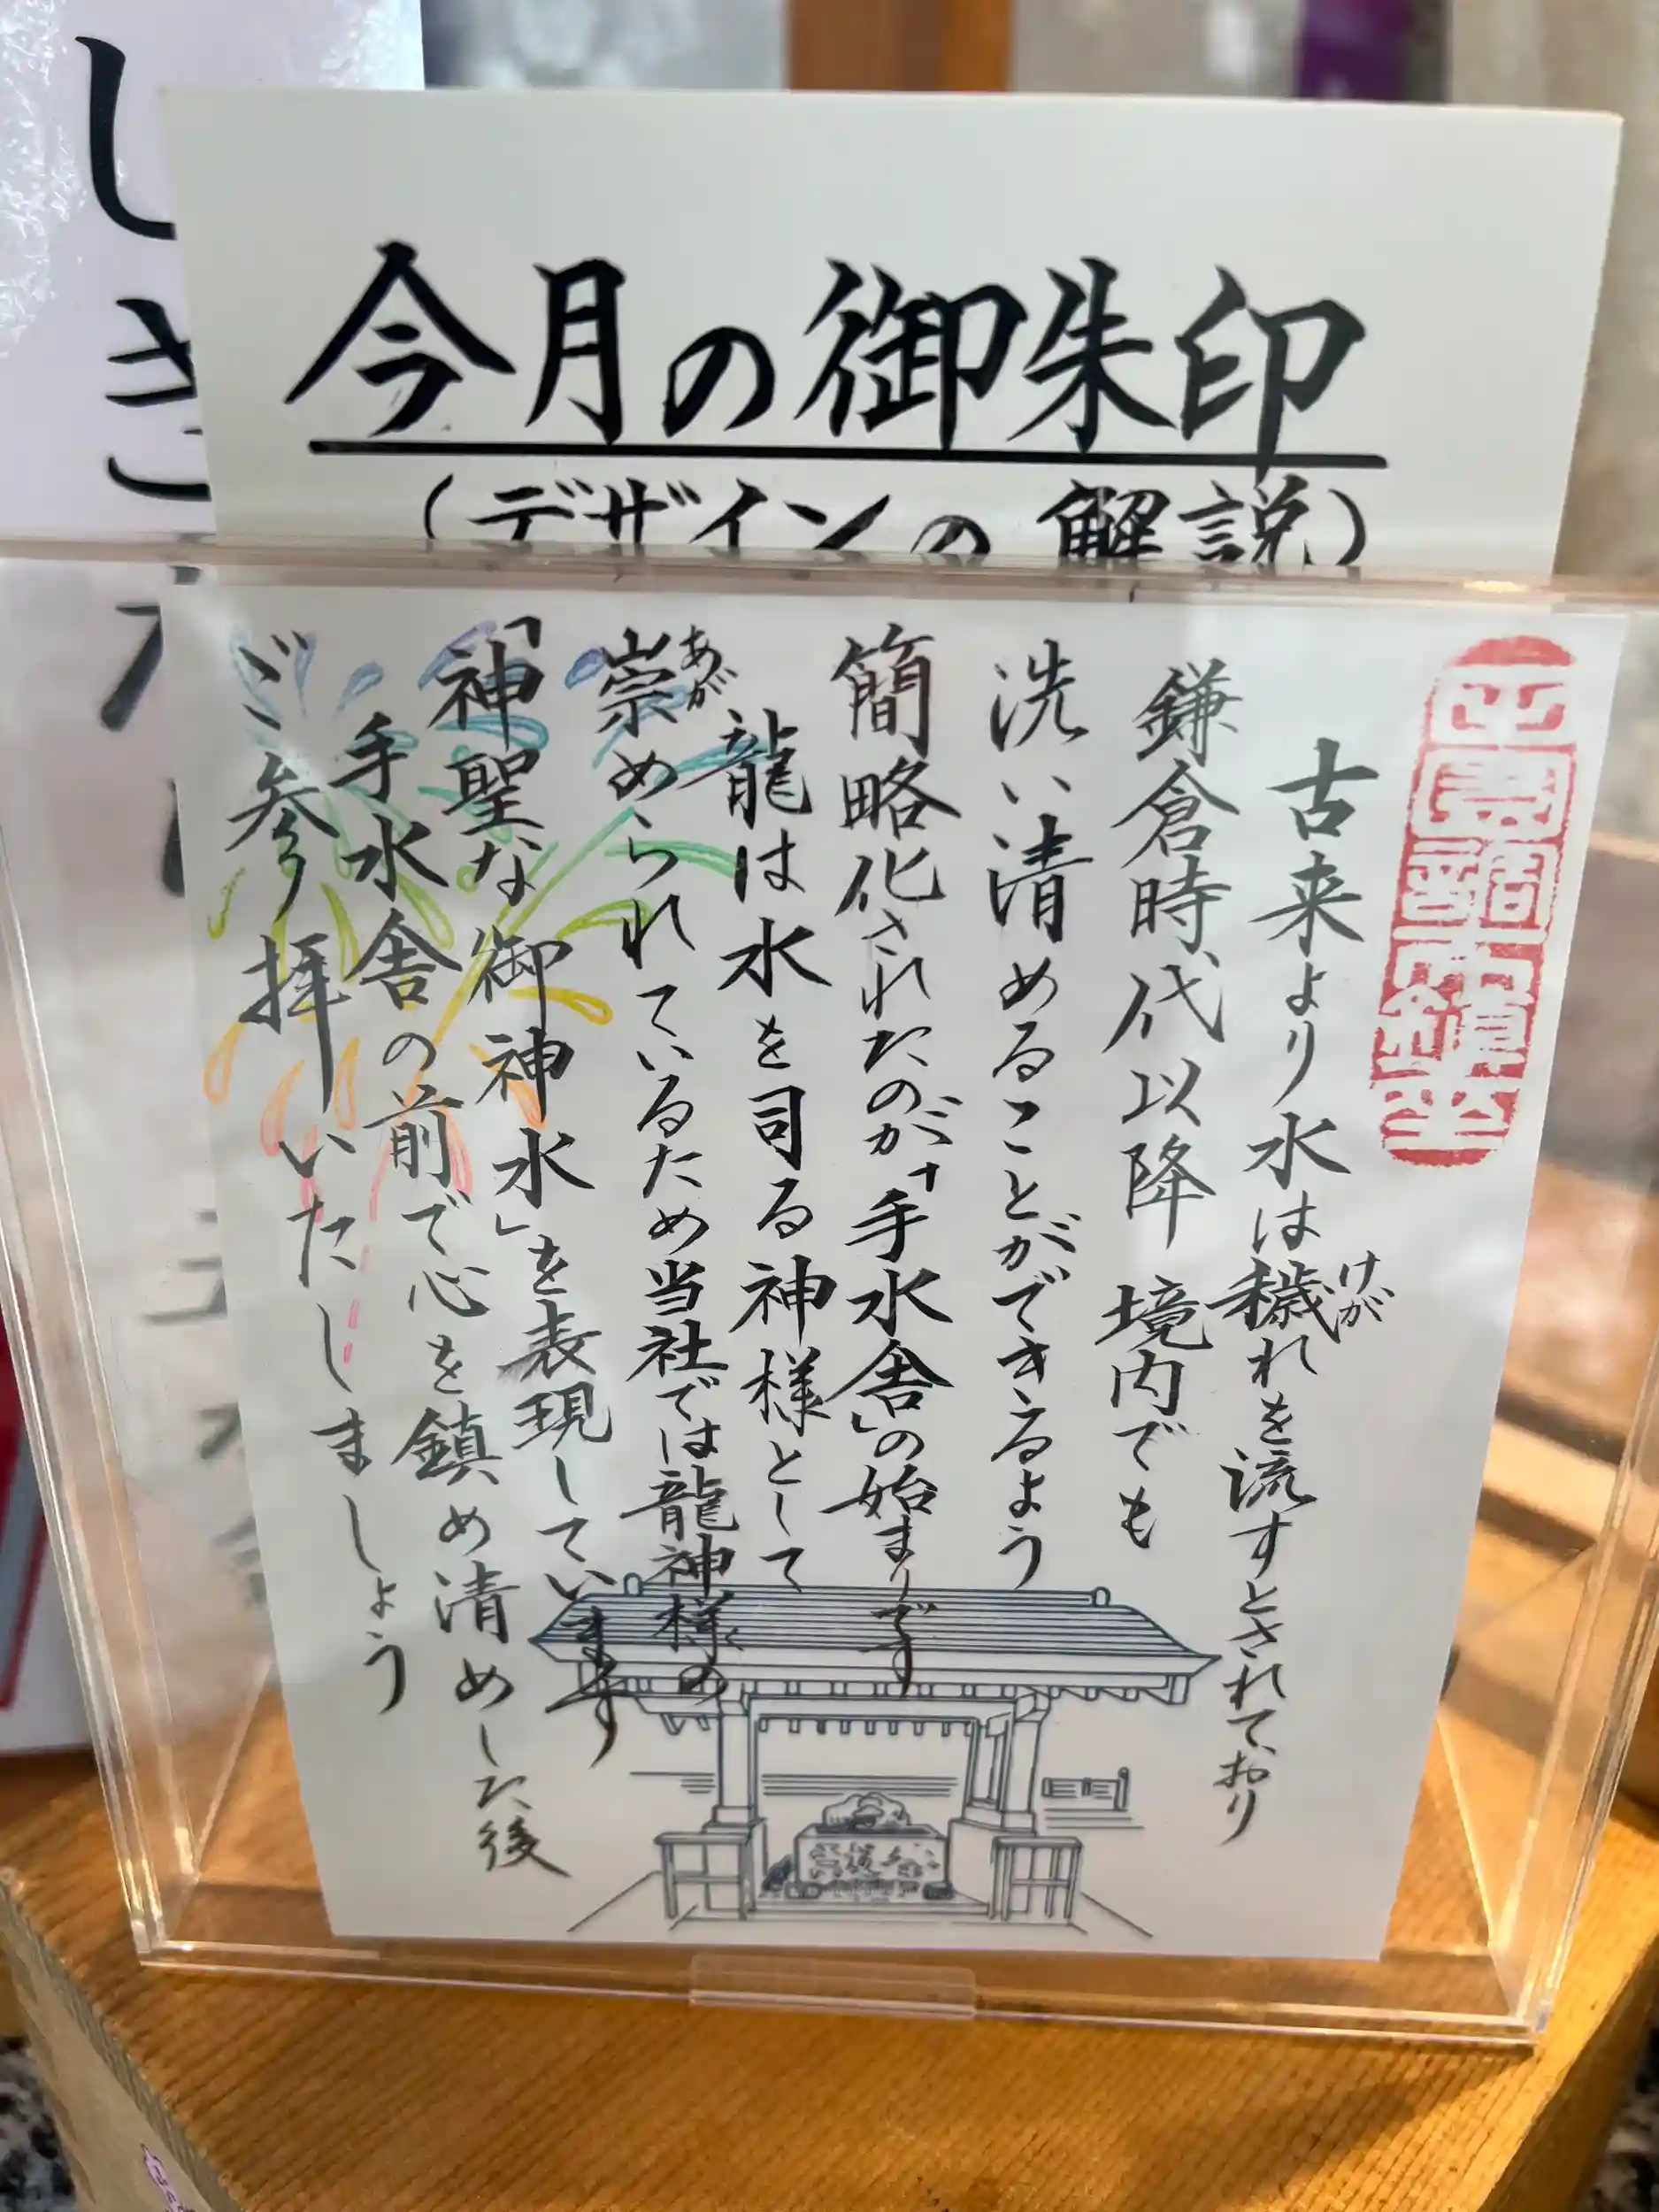 今月の御朱印
(デザインの解説)
古来より水は穢れを流すとされており
けが
鎌倉時代以降 境内でも
洗い清めることができるよう
簡略化されたのが「手水舎」の始まりです
龍は水を司る神様として
崇められているため当社では龍神様の
あが
「神聖な御神水」を表現しています
手水舎の前で心を鎮め清めした後
ご参拝いたしましょう